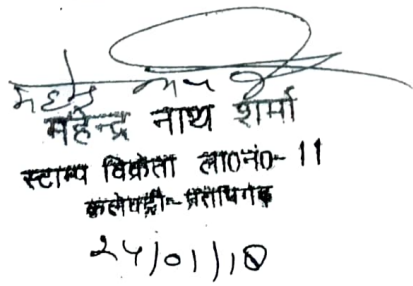 महेन्द्र नाथ शर्मा
स्टाम्प विक्रेता ला0नं0-11
कलेक्ट्री-प्रतापगढ़
24/01/18